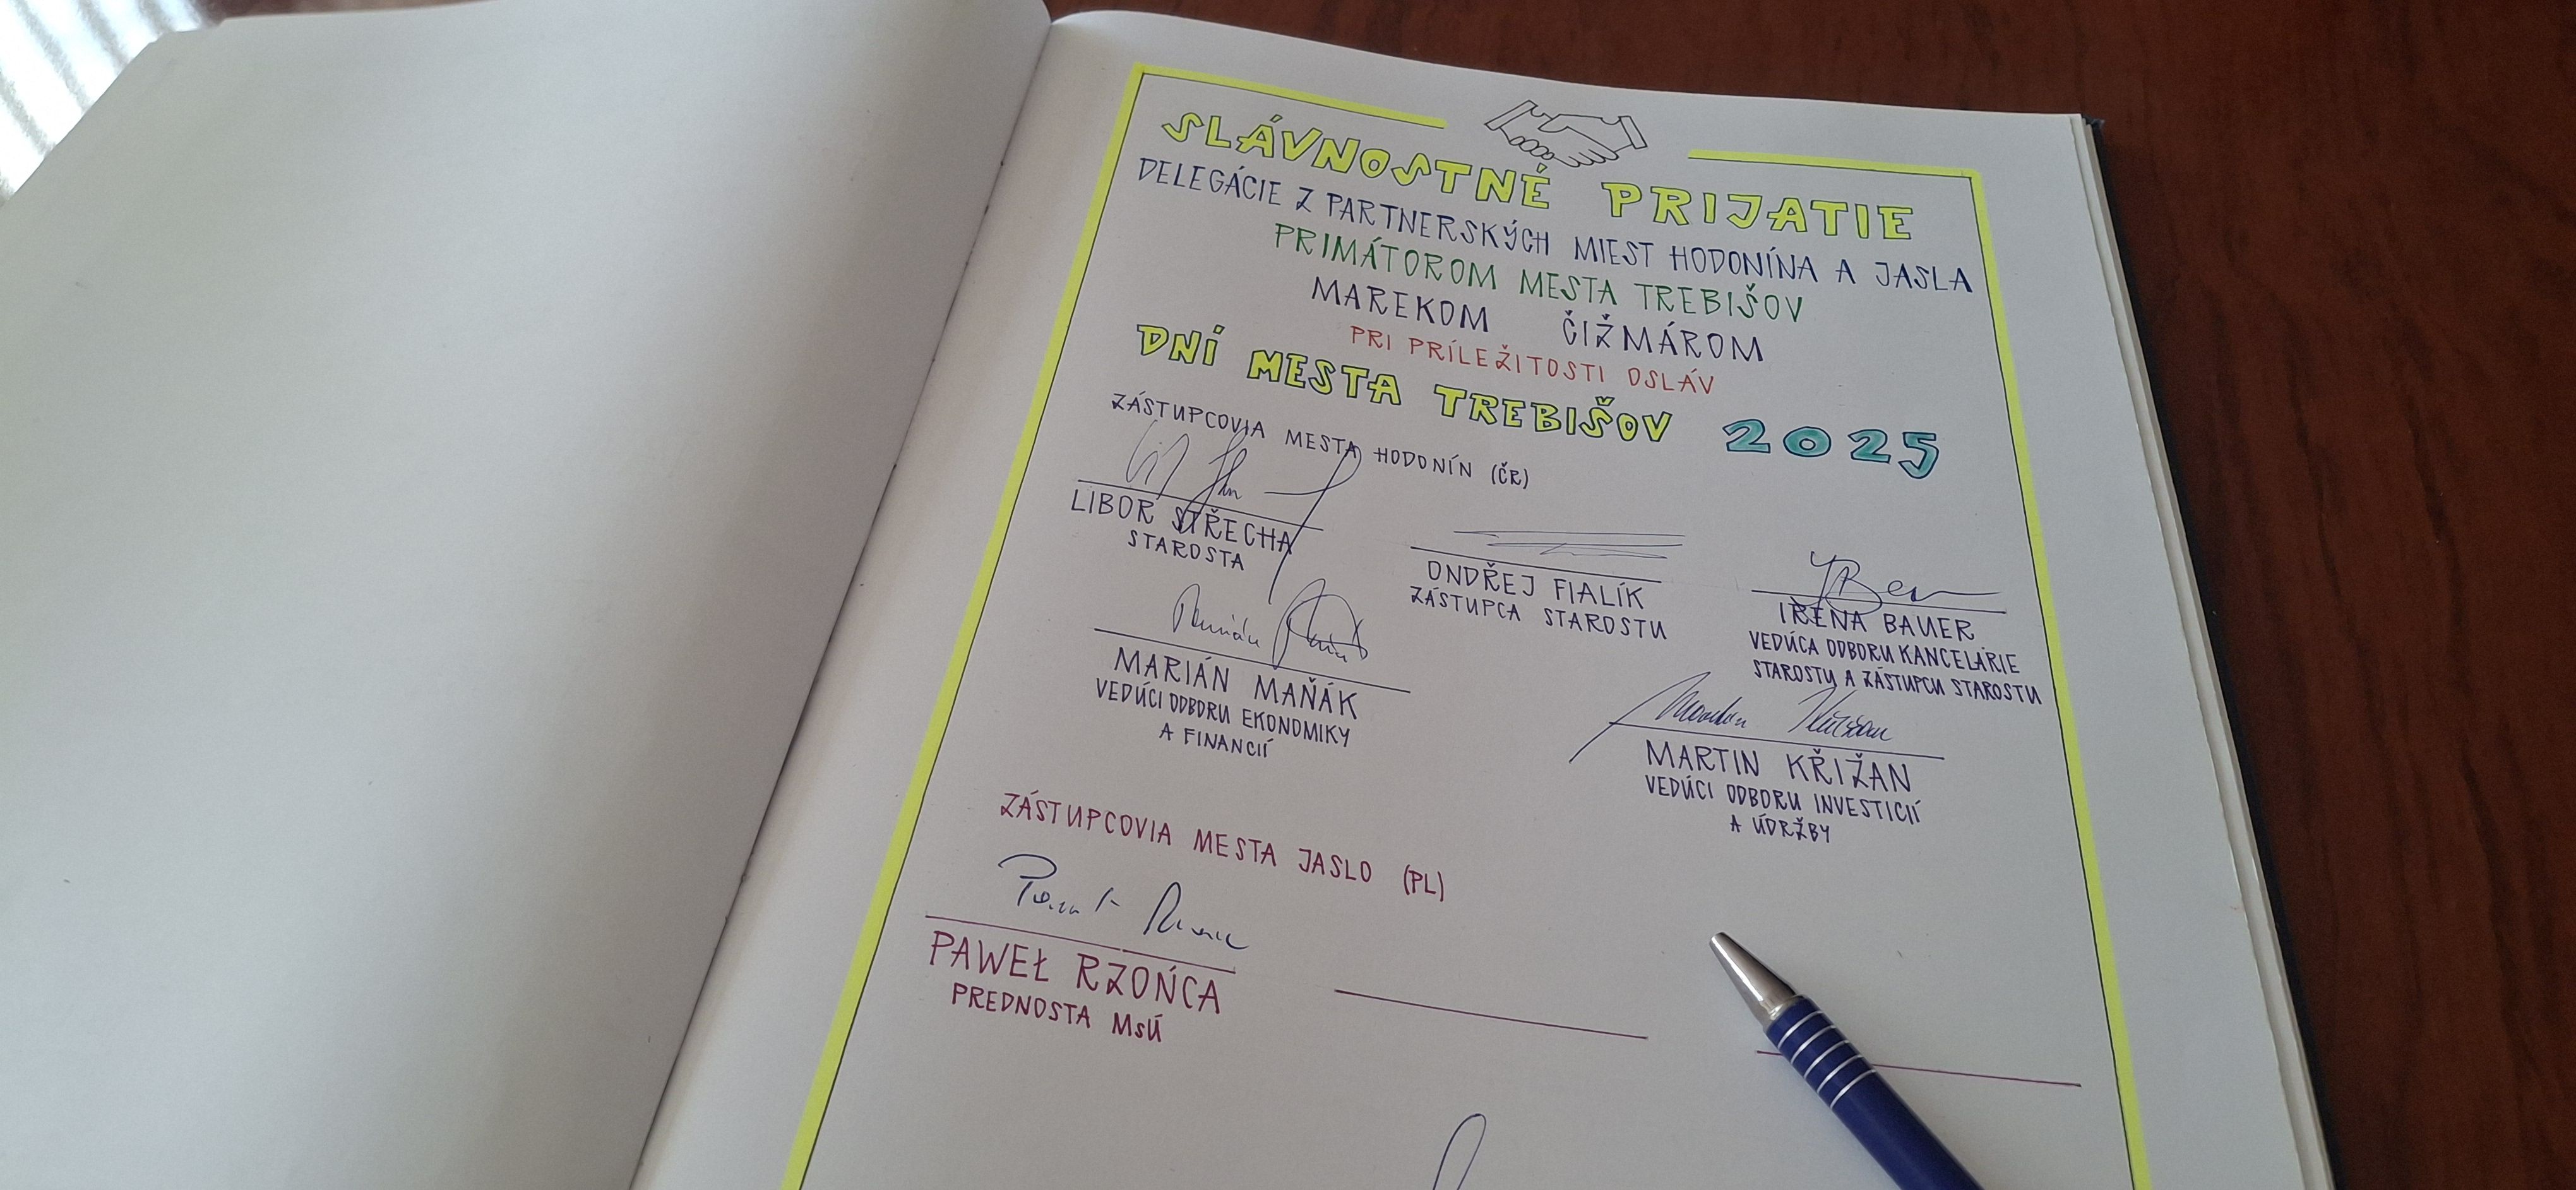 SLÁVNOSTNÉ PRIJATIE
DELEGÁCIE Z PARTNERSKÝCH MIEST HODONÍNA A JASLA
PRIMÁTOROM MESTA TREBIŠOV
MAREKOM ČIŽMÁROM
PRI PRÍLEŽITOSTI OSLÁV
DNÍ MESTA TREBIŠOV 2025
ZÁSTUPCOVIA MESTA HODONÍN (ČR)
LIBOR STŘECHA
STAROSTA
ONDŘEJ FIALÍK
ZÁSTUPCA STAROSTU
IRENA BAUER
VEDÚCA ODBORU KANCELÁRIE
STAROSTU A ZÁSTUPCU STAROSTU
MARIÁN MAŇÁK
VEDÚCI ODBORU EKONOMIKY
A FINANCIÍ
MARTIN KŘIŽAN
VEDÚCI ODBORU INVESTICIÍ
A ÚDRŽBY
ZÁSTUPCOVIA MESTA JASLO (PL)
PAWEŁ RZOŃCA
PREDNOSTA MsÚ